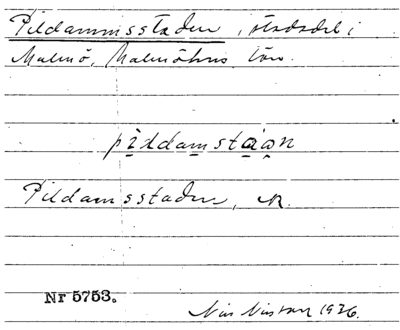 Pildammsstaden, stadsdel i
Malmö, Malmöhus län.
pildamstaan
Pildamsstaden, R.
Nr 5753.
1926.